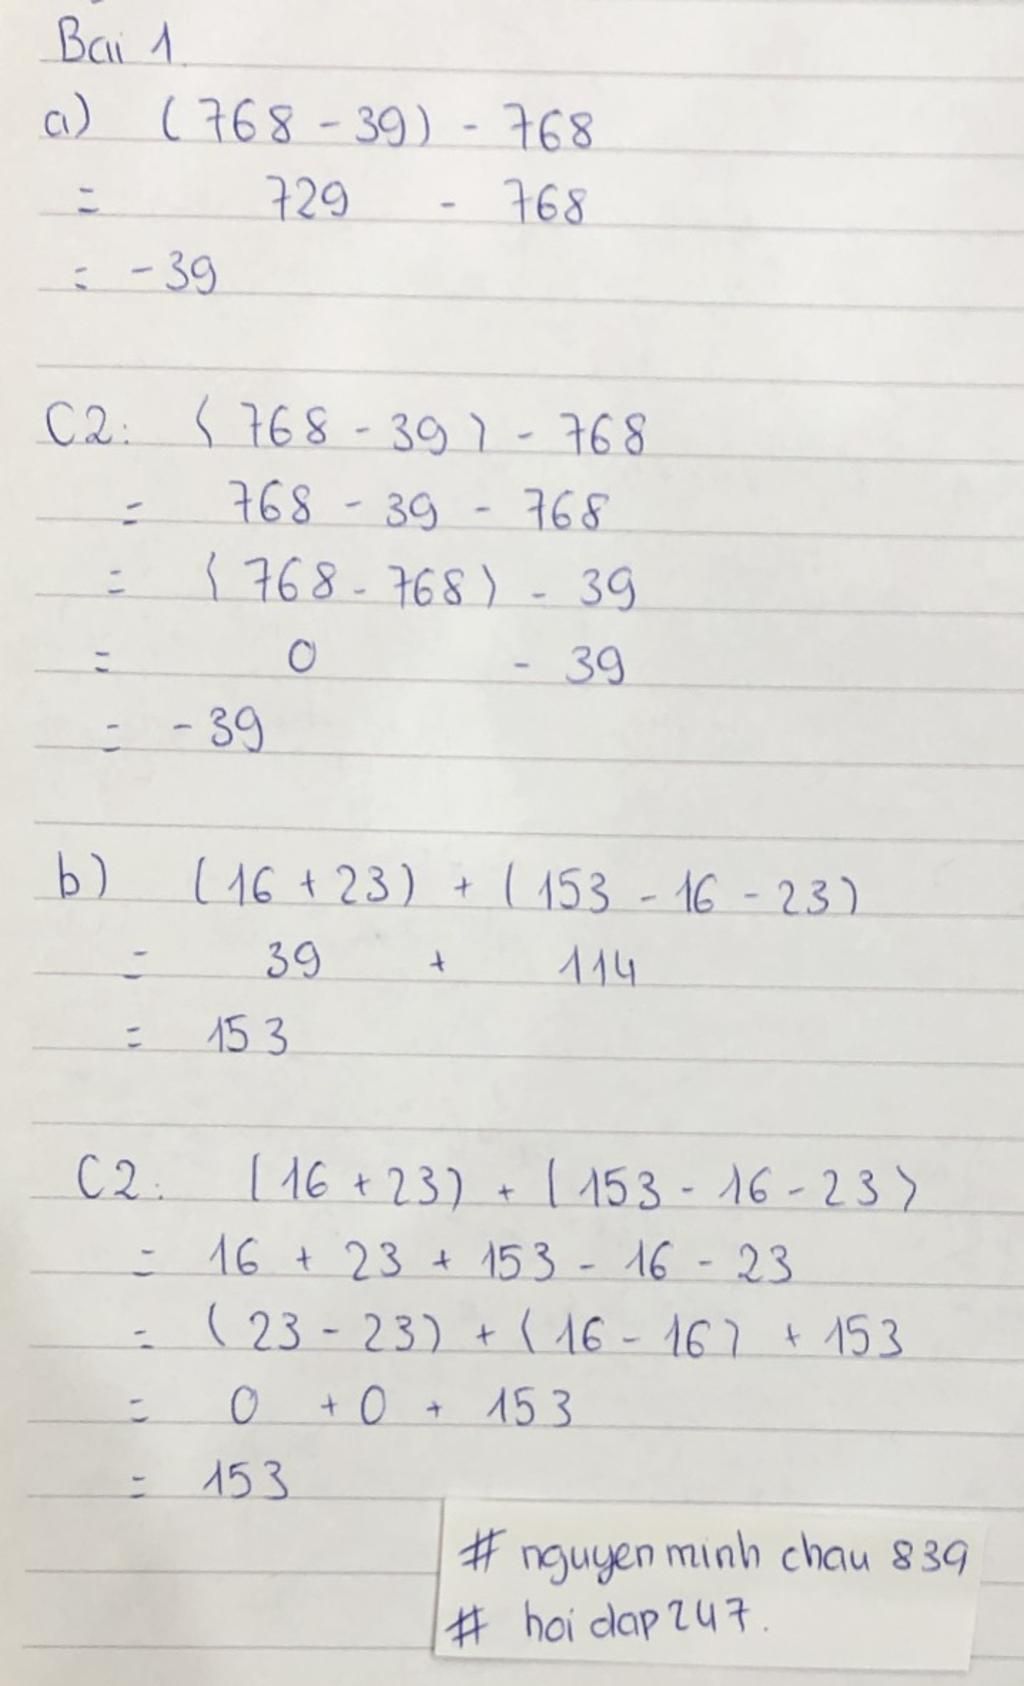 Bài 1.
a) (768 - 39) - 768
= 729 - 768
= -39
C2: (768 - 39) - 768
= 768 - 39 - 768
= (768 - 768) - 39
= 0 - 39
= -39
b) (16 + 23) + (153 - 16 - 23)
= 39 + 114
= 153
C2: (16 + 23) + (153 - 16 - 23)
= 16 + 23 + 153 - 16 - 23
= (23 - 23) + (16 - 16) + 153
= 0 + 0 + 153
= 153
# nguyen minh chau 839
# hoi dap 247.